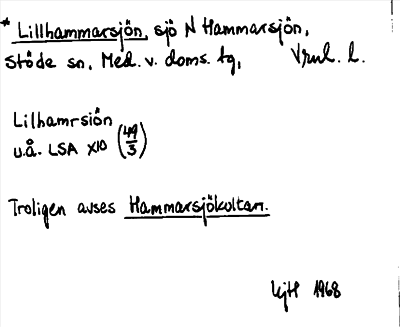 * Lillhammarsjön, sjö N Hammarsjön,
Stöde sn, Med. v. doms. tg,
Lilhamrsiön
u.å. LSA X10 (49/3)
Troligen avses Hammarsjökultan.
1968